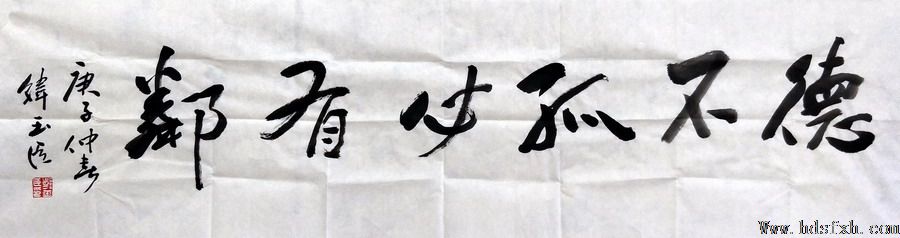 德不孤必有鄰
庚子仲春
Www.hdsfxh.com